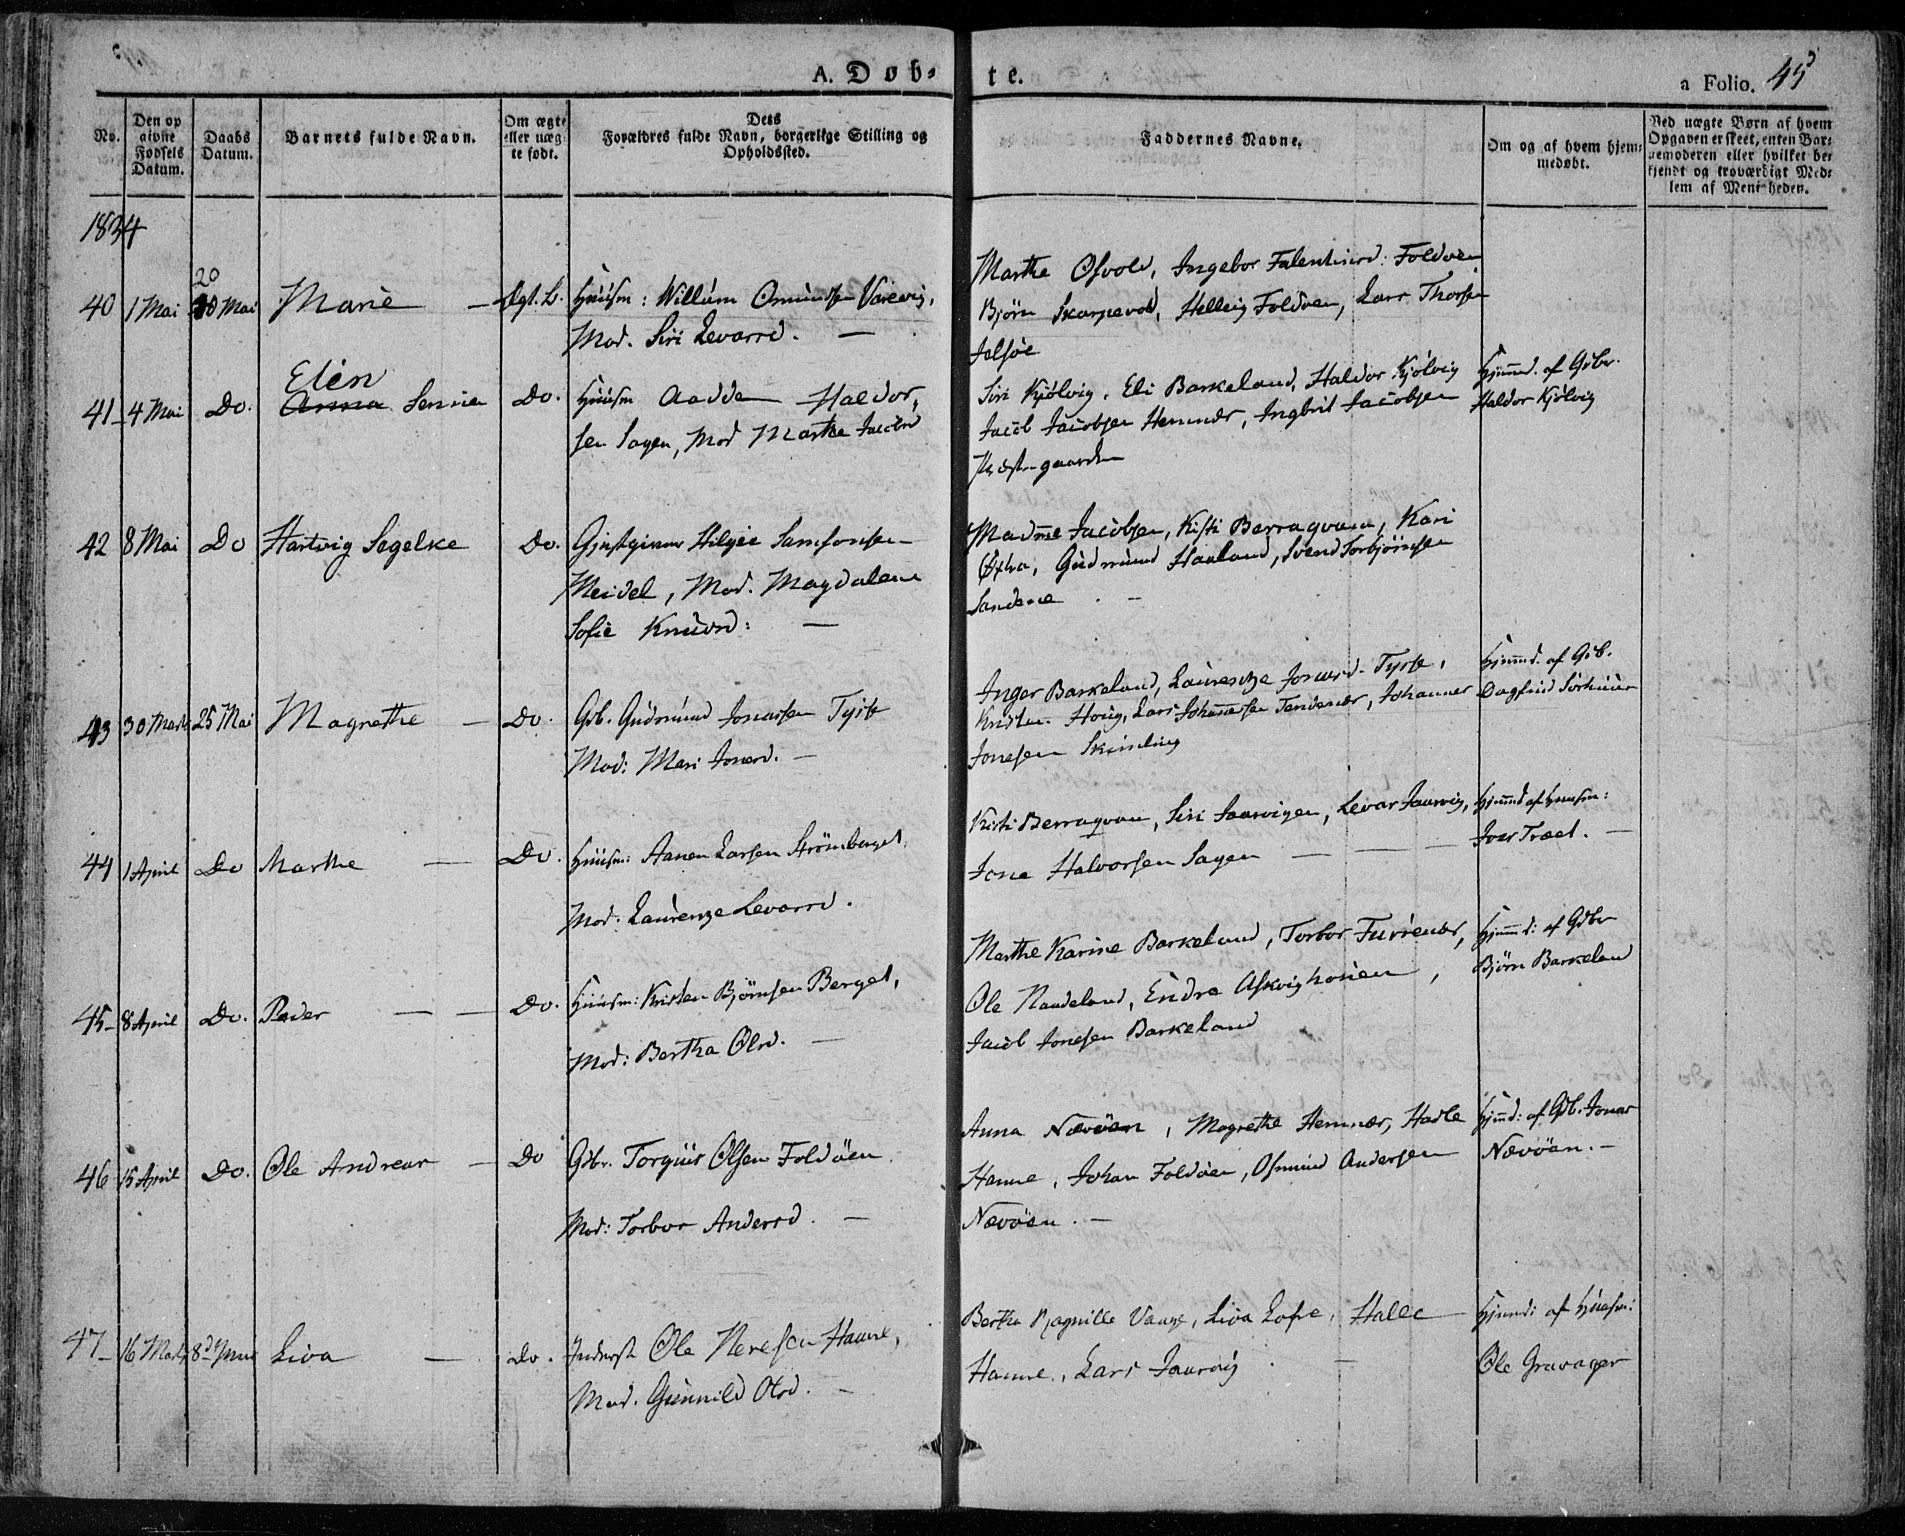 A. Døb-te.
a Folio. 45
No.
Den op
givne
Fødsels
Datum.
Daabs
Datum.
Barnets fulde Navn.
Om ægte
eller uæg-
te født.
Dets
Forældres fulde Navn, borgerlige Stilling og
Opholdssted.
Faddernes Navne.
Om og af hvem hjem-
medøbt.
Ved uægte Børn af hvem
Opgaven er skeet, enten Bar-
nemoderen eller hvilket be
kjendt og troværdigt Med-
lem af Menigheden.
1834
20
40 1 Mai 18 Mai Marie — Ægt. b. Huusm: Willum Omundsen Varevig,
Mod. Siri Levarsd. —
Marthe Osvold, Ingebor Falentinsd: Foldøen
Bjørn Skarpevold, Helleig Foldøen, Lars Thorsen
Jelsøe
Elen
41 4 Mai Do. Anna Serina Do. Huusm Aadde Haldor-
sen Sagen, Mod Marthe Jacobsd
Siri Kjölvig, Eli Barkeland, Haldor Kjölvig
Jacob Jacobsen Hemnær, Ingbrit Jacobsen
Præstegaarden
Hjemmd. af Gdbr.
Haldor Kjölvig
42 8 Mai Do Hartvig Segelke Do. Gjestgiver Helgie Samsonsen
Meidel, Mod. Magdalene
Sofie Knudsd: —
Madme Jacobsen, Kisti Berraqvam, Kari
Gudmund Haaland, Svend Torbjörnsen
Sandene
43 30 Marts 25 Mai Magrethe — Do. Grb. Gudmund Jonassen Tysse
Mod: Mari Jonesd. —
Inger Barkeland, Laurentze Jonassd. Tysse,
Houg, Lars Johannesen Tendenær, Johannes
Jonesen
Hjemmd. af Gdb.
Dagfind
44 1 April Do Marthe — Do. Huusm: Aanen Larsen Strömberget,
Mod. Laurenze Levarsd.
Kisti Berraqvam, Siri Jaasvigen, Levar Jaasvig,
Jone Halvorsen Sagen — — —
Hjemmd af Huusm:
Iver Træet. —
45 8 April Do. Peder — — Do. Huusm: Kristen Bjørnsen Berget,
Mod: Bertha Olsd. —
Marthe Karine Barkeland, Torbor Furrenær,
Ole Naudeland, Endre Askvighouen,
Jacob Jonesen Barkeland
Hjemmd: af Gdbr
Bjørn Barkelan
46 15 April Do. Ole Andreas — Do Gdbr. Torgius Olsen Foldöen
Mod: Torbor Andersd. —
Anna Nævöen, Magrethe Hemnær, Hadle
Hamre, Johan Foldöen, Osmund Andersen
Nævöen. —
Hjmd: af Gdb. Jonas
Nævöen. —
47 16 Marts 8d Juni Liva — Do. Inderst Ole Neresen Hamre,
Mod. Gunnild Olsd. —
Bertha Ragnille Vange, Liva Halle
Hamre, Lars Jaasvig. —
Hjemmd: af Huusm:
Ole Gravager